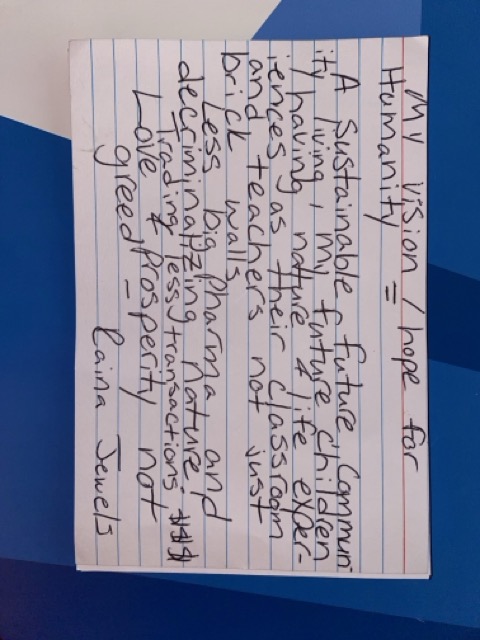 My vision / hope for
Humanity =
A sustainable future, Commun
ity living, my future children
having, nature & life exper-
iences as their classroom
and teachers not just
brick walls
Less big Pharma and
decriminalizing nature.
Trading less transactions $$$
Love & Prosperity not
greed -
Raina Jewels